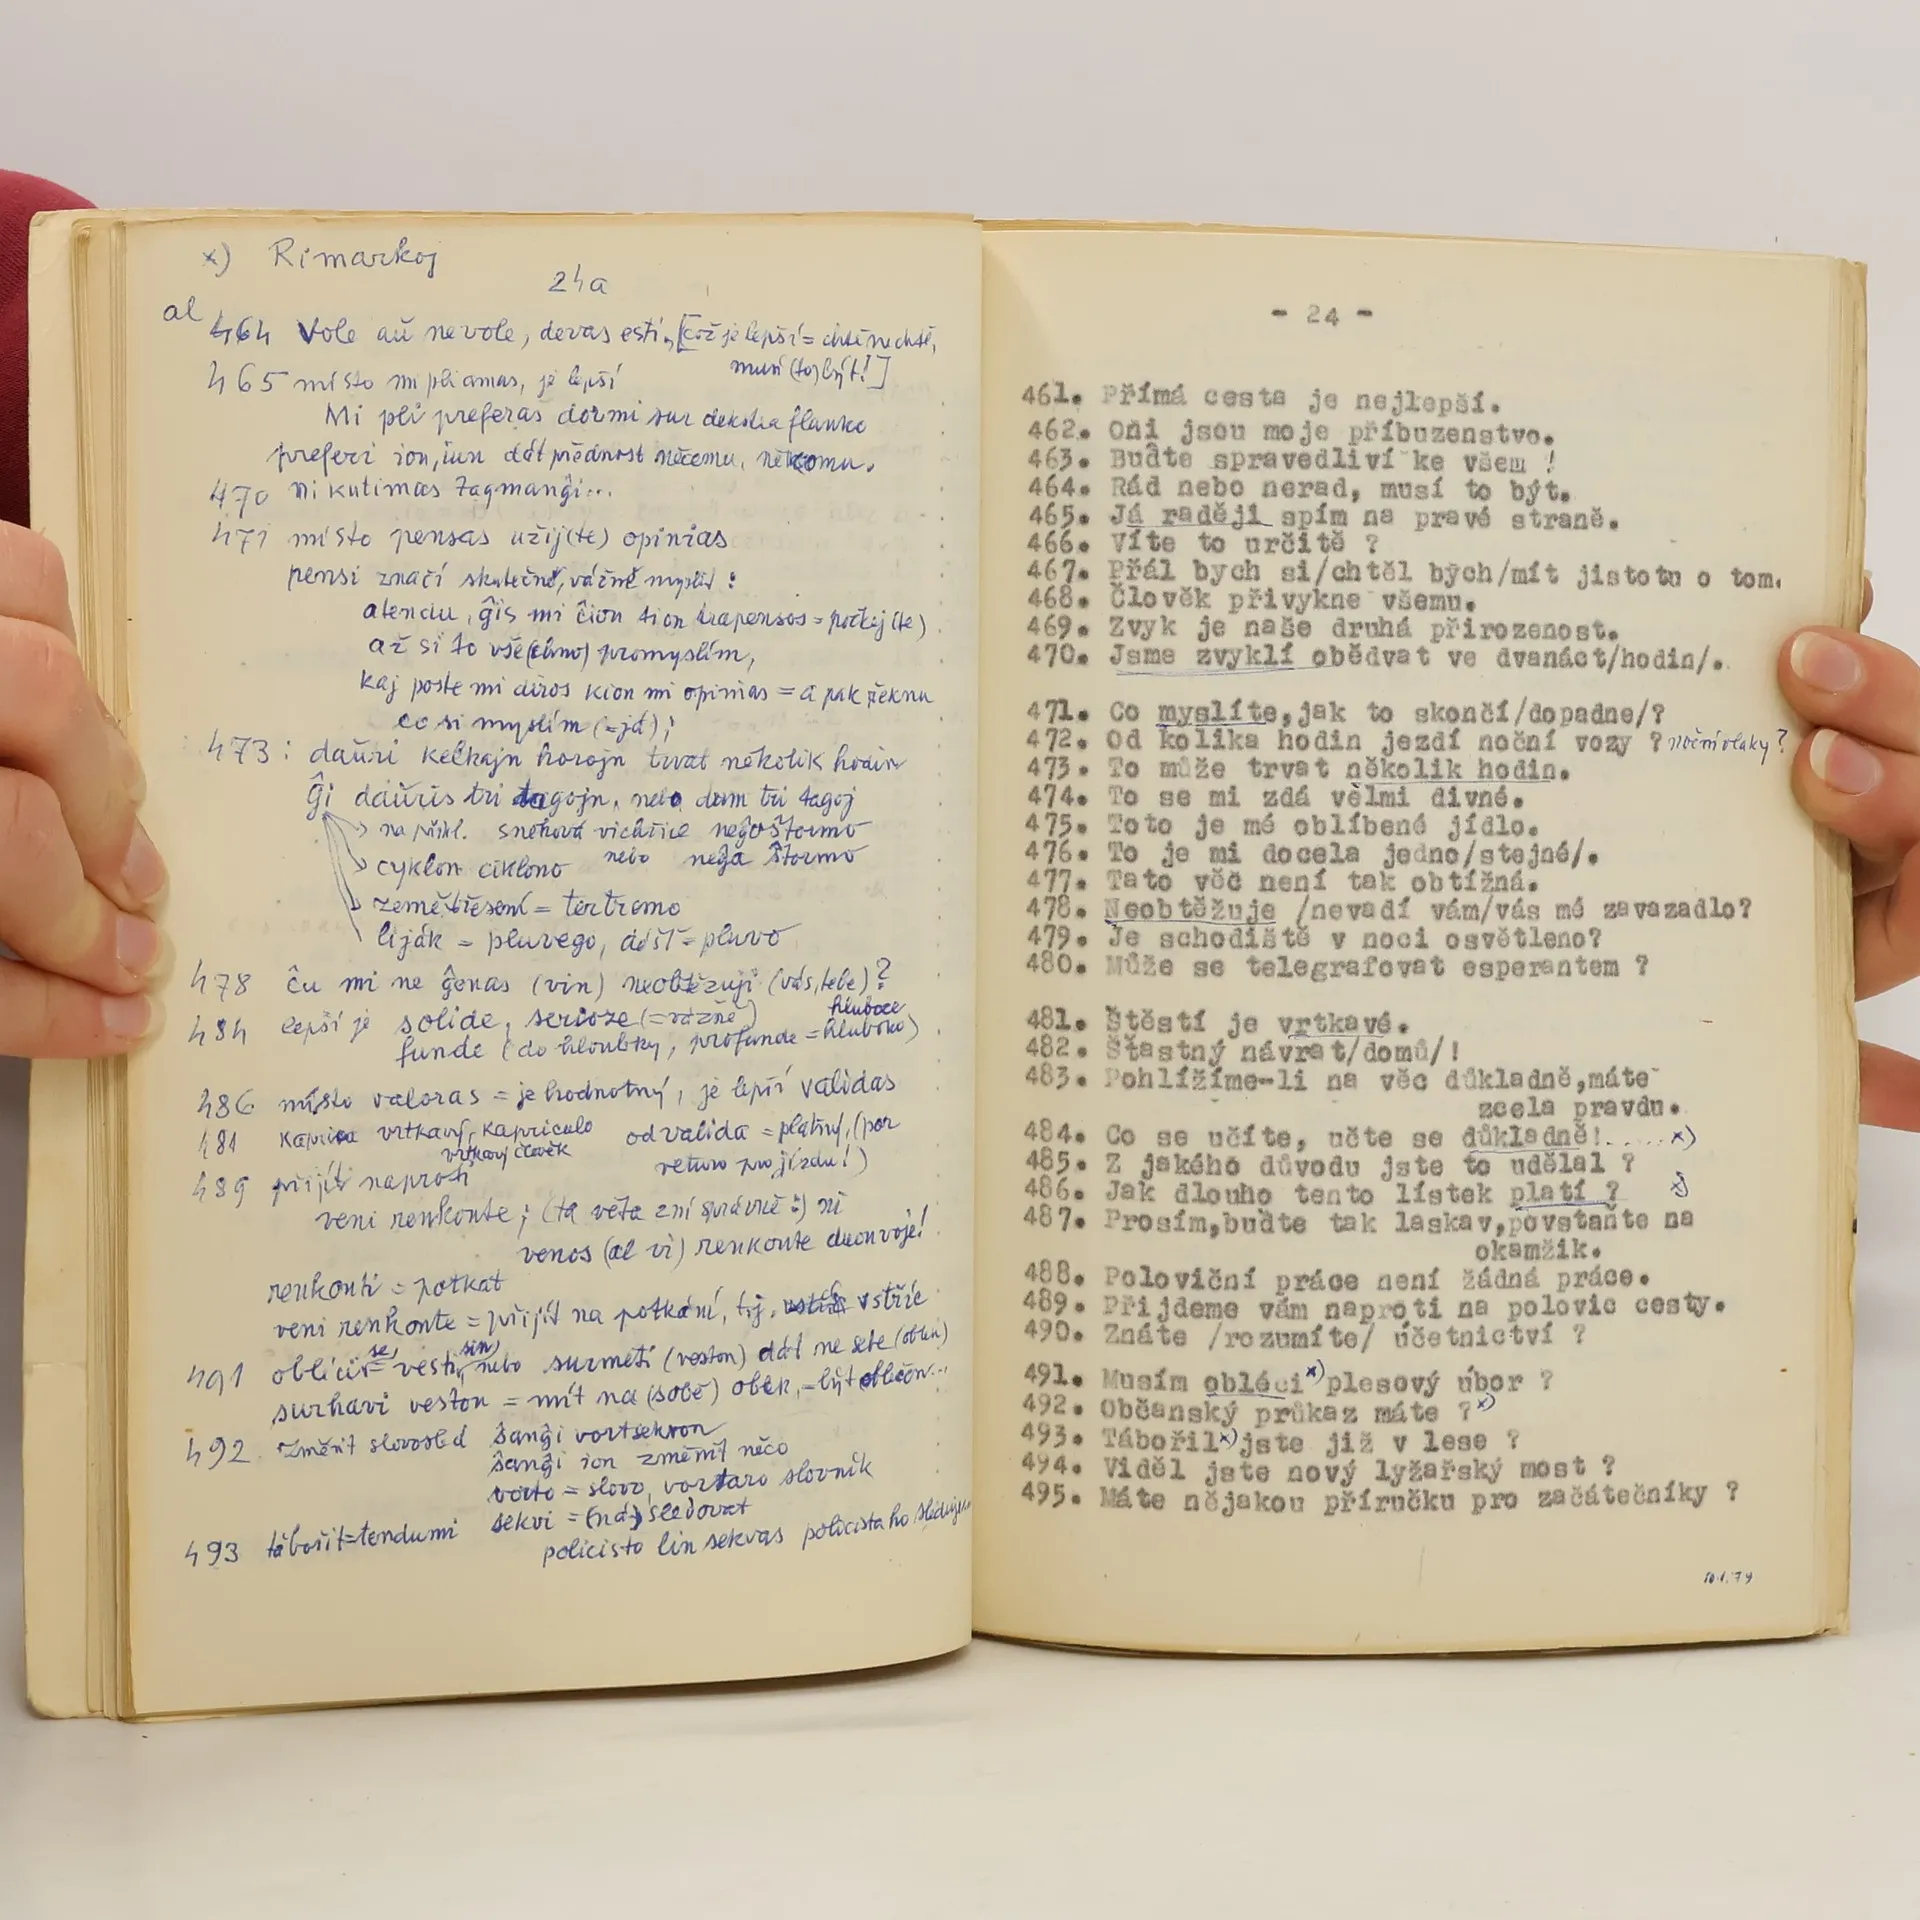 x) Rimarkoj
24a
al 464 Vole aŭ nevole, devas esti, [což je lepší = chtě nechtě,
musí (to) být!]
465 místo mi pli amas, je lepší
Mi pli preferas dormi sur dekstra flanko
preferi ion, iun dát přednost něčemu, někomu.
470 ni kutimas tagmanĝi...
471 místo pensas užij(te) opinias
pensi značí skutečně, vážně myslit:
atendu, ĝis mi ĉion tion trapensos = počkej(te)
až si to vše(chno) promyslím,
kaj poste mi diros kion mi opinias = a pak řeknu
co si myslím (=já);
473: daŭri kelkajn horojn trvat několik hodin
Ĝi daŭris tri tagojn, nebo dum tri tagoj
na příkl. sněhová vichřice neĝoŝtormo
nebo neĝa ŝtormo
cyklon ciklono
zemětřesení = tertremo
liják = pluvego, déšť = pluvo
478 ĉu mi ne ĝenas (vin) neobtěžuji (vás, tebe)?
484 lepší je solide, serioze (=vážně)
hluboce
funde (do hloubky, profunde = hluboko)
486 místo valoras = je hodnotný, je lepší validas
481 kaprica vrtkavý, kapriculo
vrtkavý člověk
od valida = platný, (por
veturo pro jízdu!)
489 přijíti naproti
veni renkonte; (ta věta zní správně:) ni
venos (al vi) renkonte duonvoje!
renkonti = potkat
veni renkonte = přijít na potkání, tj. vstříc
491 obléci se = vesti sin, nebo surmeti (veston) dát na sebe (oblek)
surhavi veston = mít na (sobě) oblek, = být oblečen...
492 změnit slovosled ŝanĝi vortsekvon
ŝanĝi ion změnit něco
vorto = slovo, vortaro slovník
sekvi = (ná-) sledovat
493 tábořit = tendumi
policisto lin sekvas policista ho sleduje
- 24 -
461. Přímá cesta je nejlepší.
462. Oni jsou moje příbuzenstvo.
463. Buďte spravedliví ke všem !
464. Rád nebo nerad, musí to být.
465. Já raději spím na pravé straně.
466. Víte to určitě ?
467. Přál bych si/chtěl bych/mít jistotu o tom.
468. Člověk přivykne všemu.
469. Zvyk je naše druhá přirozenost.
470. Jsme zvyklí obědvat ve dvanáct/hodin/.
471. Co myslíte,jak to skončí/dopadne/?
472. Od kolika hodin jezdí noční vozy ? noční vlaky?
473. To může trvat několik hodin.
474. To se mi zdá velmi divné.
475. Toto je mé oblíbené jídlo.
476. To je mi docela jedno/stejné/.
477. Tato věc není tak obtížná.
478. Neobtěžuje /nevadí vám/vás mé zavazadlo?
479. Je schodiště v noci osvětleno?
480. Může se telegrafovat esperantem ?
481. Štěstí je vrtkavé.
482. Šťastný návrat/domů/!
483. Pohlížíme-li na věc důkladně,máte
zcela pravdu.
484. Co se učíte, učte se důkladně!.....x)
485. Z jakého důvodu jste to udělal ?
486. Jak dlouho tento lístek platí ? x)
487. Prosím,buďte tak laskav,povstaňte na
okamžik.
488. Poloviční práce není žádná práce.
489. Přijdeme vám naproti na polovic cesty.
490. Znáte /rozumíte/ účetnictví ?
491. Musím obléci x) plesový úbor ?
492. Občanský průkaz máte ? x)
493. Tábořil x) jste již v lese ?
494. Viděl jste nový lyžařský most ?
495. Máte nějakou příručku pro začátečníky ?
10.1.79